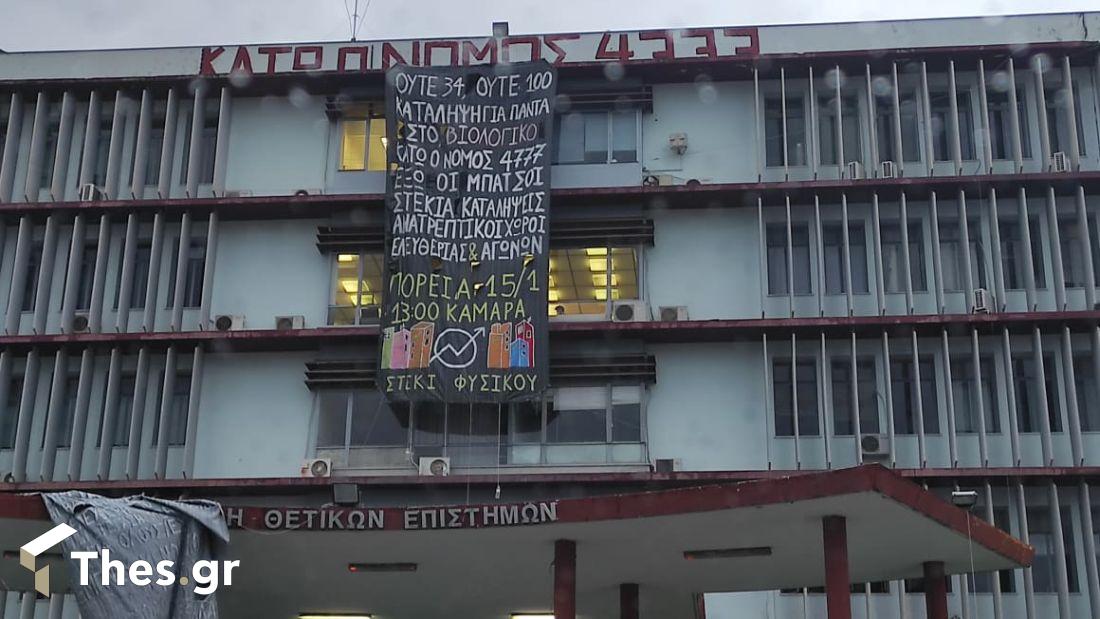 ΚΑΤΩ Ο ΝΟΜΟΣ 4777
ΟΥΤΕ 34, ΟΥΤΕ 100
ΚΑΤΑΛΗΨΗ ΓΙΑ ΠΑΝΤΑ
ΣΤΟ ΒΙΟΛΟΓΙΚΟ
ΚΑΤΩ Ο ΝΟΜΟΣ 4777
ΕΞΩ ΟΙ ΜΠΑΤΣΟΙ
ΣΤΕΚΙΑ ΚΑΤΑΛΗΨΕΙΣ
ΑΝΑΤΡΕΠΤΙΚΟΙ ΧΩΡΟΙ
ΕΛΕΥΘΕΡΙΑΣ & ΑΓΩΝΩΝ
ΠΟΡΕΙΑ: 15/1
13:00 ΚΑΜΑΡΑ
ΣΤΕΚΙ ΦΥΣΙΚΟΥ
Η ΘΕΤΙΚΩΝ ΕΠΙΣΤΗΜΩΝ
Thes.gr